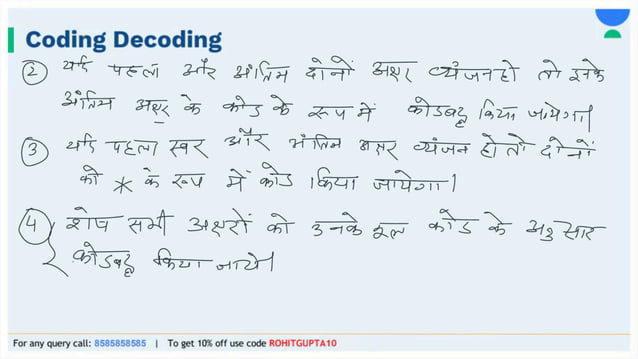 Coding Decoding
② यदि पहला और अंतिम दोनों अक्षर व्यंजन हो तो इनके
अंतिम अक्षर के कोड के रूप में कोडबद्ध किया जायेगा।
③ यदि पहला स्वर और अंतिम अक्षर व्यंजन हो तो दोनों
को * के रूप में कोड किया जायेगा।
④ शेष सभी अक्षरों को उनके मूल कोड के अनुसार
कोडबद्ध किया जाये।
For any query call: 8585858585 | To get 10% off use code ROHITGUPTA10